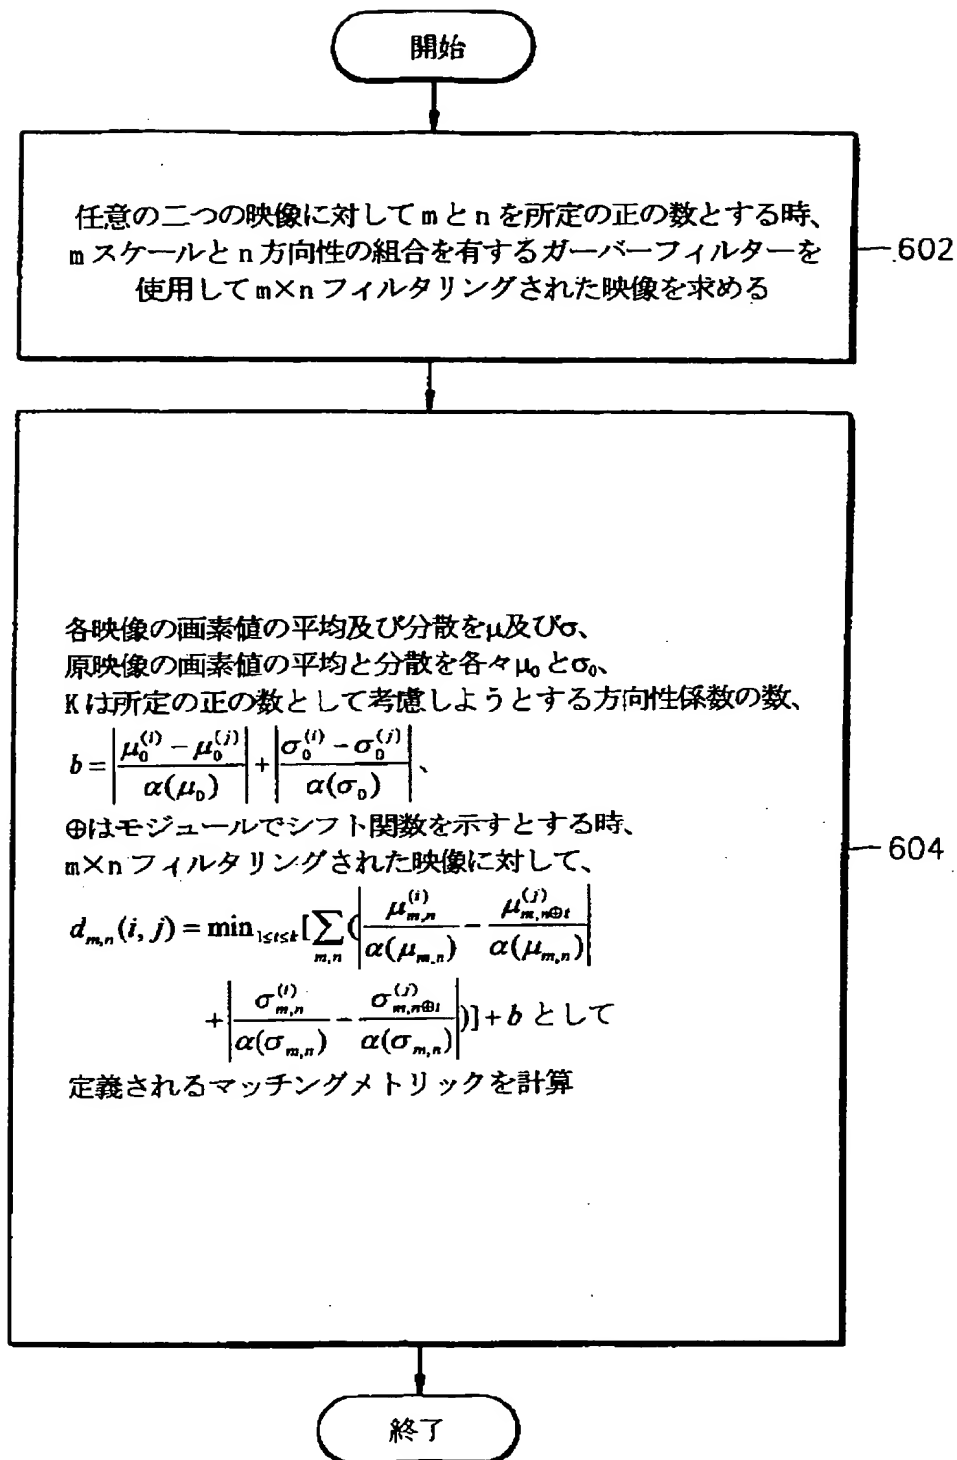 開始
任意の二つの映像に対してmとnを所定の正の数とする時、
mスケールとn方向性の組合を有するガーバーフィルターを
使用してm×nフィルタリングされた映像を求める
602
各映像の画素値の平均及び分散をμ及びσ、
原映像の画素値の平均と分散を各々μ₀とσ₀、
Kは所定の正の数として考慮しようとする方向性係数の数、
b = |(μ₀^(i) − μ₀^(j)) / α(μ₀)| + |(σ₀^(i) − σ₀^(j)) / α(σ₀)|、
⊕はモジュールでシフト関数を示すとする時、
m×nフィルタリングされた映像に対して、
604
d_{m,n}(i, j) = min_{1≤t≤k}[∑_{m,n}(|μ_{m,n}^(i) / α(μ_{m,n}) − μ_{m,n⊕t}^(j) / α(μ_{m,n})|
+ |σ_{m,n}^(i) / α(σ_{m,n}) − σ_{m,n⊕t}^(j) / α(σ_{m,n})|)] + b として
定義されるマッチングメトリックを計算
終了